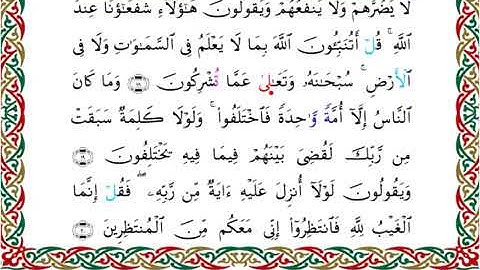 لَا يَضُرُّهُمْ وَلَا يَنفَعُهُمْ وَيَقُولُونَ هَٰٓؤُلَآءِ شُفَعَٰٓؤُنَا عِندَ
ٱللَّهِ ۚ قُلْ أَتُنَبِّـُٔونَ ٱللَّهَ بِمَا لَا يَعْلَمُ فِى ٱلسَّمَٰوَٰتِ وَلَا فِى
ٱلْأَرْضِ ۚ سُبْحَٰنَهُۥ وَتَعَٰلَىٰ عَمَّا تُشْرِكُونَ ۝١٨ وَمَا كَانَ
ٱلنَّاسُ إِلَّآ أُمَّةً وَٰحِدَةً فَٱخْتَلَفُوا۟ ۚ وَلَوْلَا كَلِمَةٌ سَبَقَتْ
مِن رَّبِّكَ لَقُضِىَ بَيْنَهُمْ فِيمَا فِيهِ يَخْتَلِفُونَ ۝١٩
وَيَقُولُونَ لَوْلَآ أُنزِلَ عَلَيْهِ ءَايَةٌ مِّن رَّبِّهِۦ ۖ فَقُلْ إِنَّمَا
ٱلْغَيْبُ لِلَّهِ فَٱنتَظِرُوٓا۟ إِنِّى مَعَكُم مِّنَ ٱلْمُنتَظِرِينَ ۝٢٠